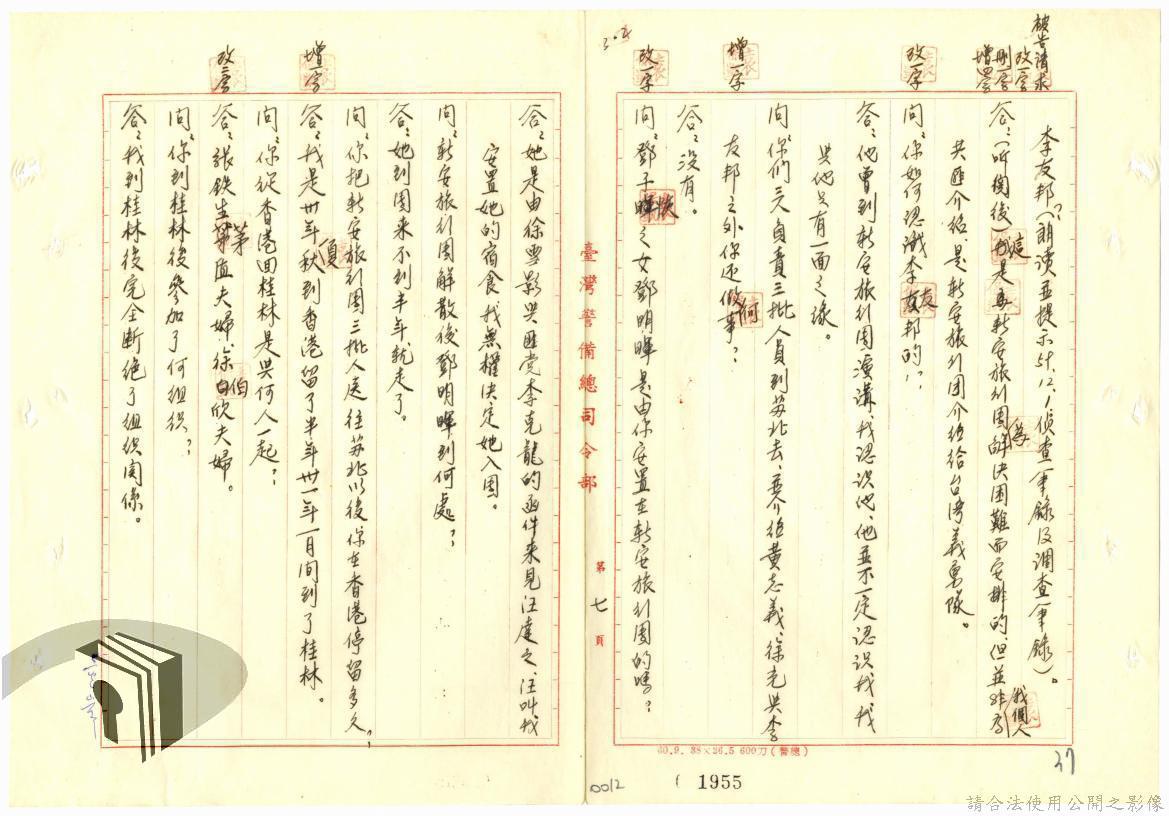 被告請求
改一字
刪一字
增四字
李友邦？（朗讀並提示58.12.1偵查筆錄及調查筆錄）。
答：（听閱後）這是為新安旅行團解決困難而安排的、但並非我個人
共匪介紹、是新安旅行团介紹給台湾義勇隊。
改一字
問：你如何認識李友邦的？
答：他曾到新安旅行團演講、我認识他、他並不一定認识我、我
與他只有一面之緣。
問：你們三人負責三批人員到苏北去、並介紹黃志義、徐克與李
增一字
友邦之外你还做何事？
答：没有。
改一字
問：鄧子恢之女鄧明暉是由你安置在新安旅行團的嗎？
臺灣警備總司令部
第七頁
答：她是由徐雪影與匪党李克龍的函件来見汪達之、汪叫我
安置她的宿食、我無權決定她入團。
問：新安旅行團解散後鄧明暉到何處？
答：她到團来不到半年就走了。
問：你把新安旅行團三批人送往苏北以後、你在香港停留多久？
增一字
答：我是卅年秋順到香港留了半年、卅一年一月間到了桂林。
問：你從香港回桂林是與何人一起？
改二字
答：張鉄生、華茅盾夫婦、徐伯欣夫婦。
問：你到桂林後參加了何組织？
答：我到桂林後完全断絕了組织関係。
60.9. 38×26.5 600刀（警總）
0012
1955
37
請合法使用公開之影像